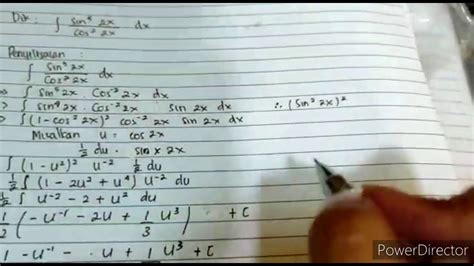 Dik : ∫ sin⁵ 2x / cos² 2x dx
Penyelesaian :
∫ sin⁵ 2x / cos² 2x dx
⇒ ∫ sin⁵ 2x Cos⁻² 2x dx
⇒ ∫ sin⁴ 2x . Cos⁻² 2x sin 2x dx ∴ (sin² 2x)²
∫ (1 - cos² 2x)² cos⁻² 2x sin 2x dx
Misalkan u = cos 2x
½ du = sin x 2x
∫ (1 - u²)² u⁻² ½ du
½ ∫ (1 - 2u² + u⁴) u⁻² du
½ ∫ u⁻² - 2 + u² du
1/2 (-u⁻¹ - 2u + 1/3 u³) + C
1 - u⁻¹ - . u + 1 u³ + C
PowerDirector